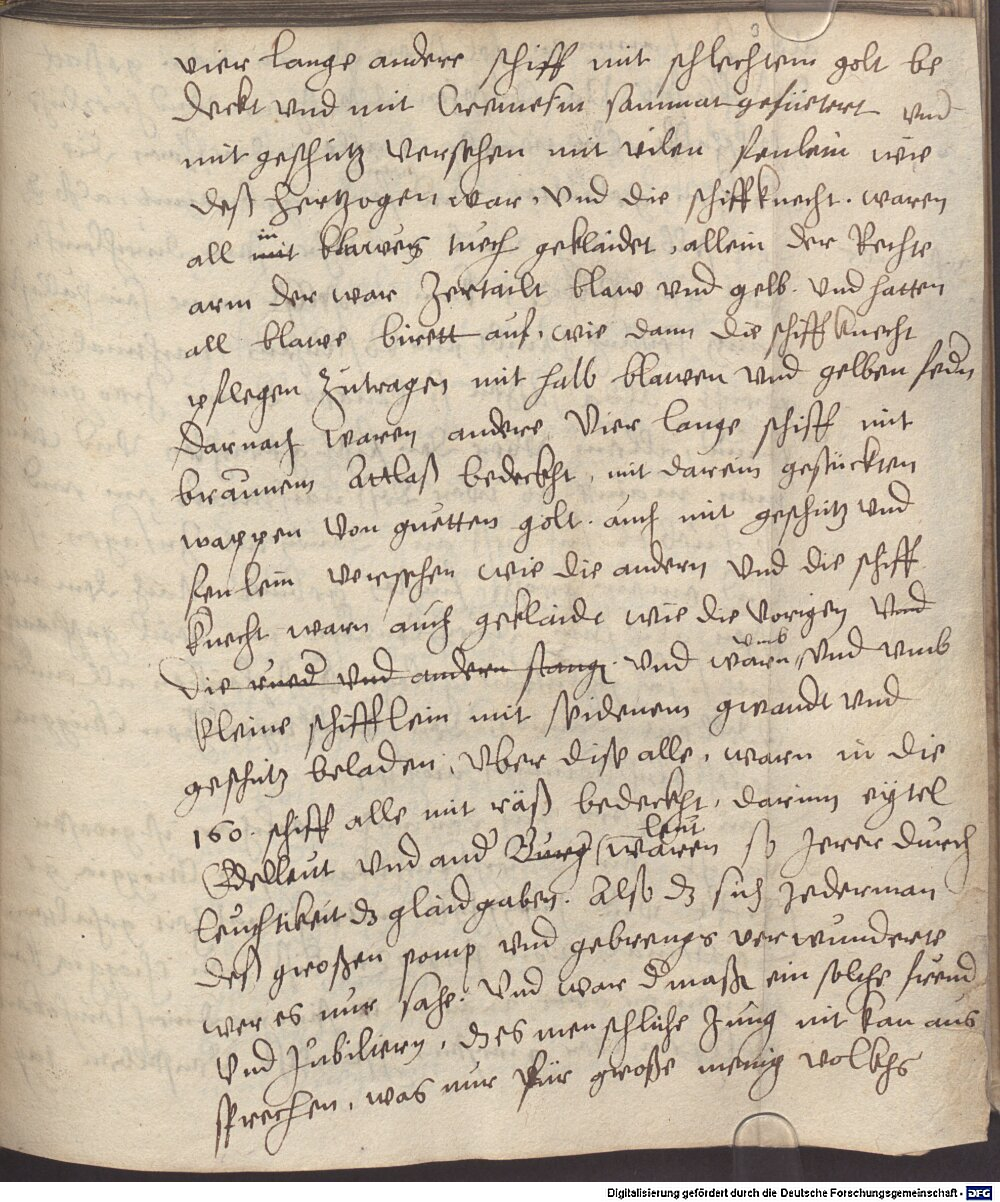 3
vier lange andere schiff mit schlechtem golt be
deckt vnd mit Cremesin sammat gefüetert vnd
mit geschütz versehen mit vilen fenlein wie
deß Hertzogen war, Vnd die schiffknecht. waren
all in mit blawes tuech geklaidet, allein der Rechte
arm der war Zertailt blaw vnd gelb. Vnd hatten
all blawe birett auf, wie dann die schiffknecht
pflegen Zutragen mit halb blawen vnd gelben fedn
Darnach waren andere Vier lange schiff mit
braunem Attlaß bedeckht, mit darein gestückten
wappen von guetten golt. auch mit geschütz vnd
fenlein versehen wie die andern Vnd die schiff
knecht warn auch geklaidt wie die Vorigen Vnd
Die rued vnd andern stang. Vnd warn vmb Vnd vmb
kleine schifflein mit seidenem gwandt vnd
geschütz beladen, Vber dise alle, warn in die
160. schiff alle mit räß bedeckht, darinn eytel
Edelleut vnd and Burg leut waren so Jerer durch
leuchtikeit dz glaid gaben. Also dz sich Jederman
deß großen pomp vnd gebrengs verwunderte
wer es nur sahe. Vnd war dmaße ein solche freud
Vnd Jubiliern, des menschliche Zung nit kan aus
sprechen, was nur für große menig volkhs
Digitalisierung gefördert durch die Deutsche Forschungsgemeinschaft - DFG